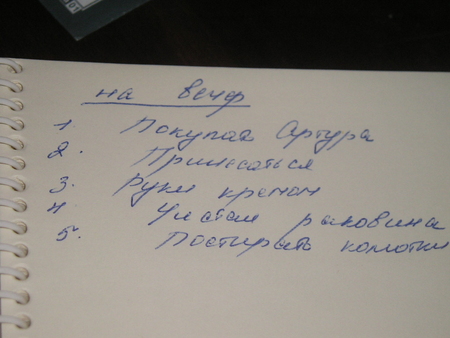 на вечер
1 Артура
2. Причесаться
3. Руки кремом
4 Чистая раковина
5. Постирать колготки